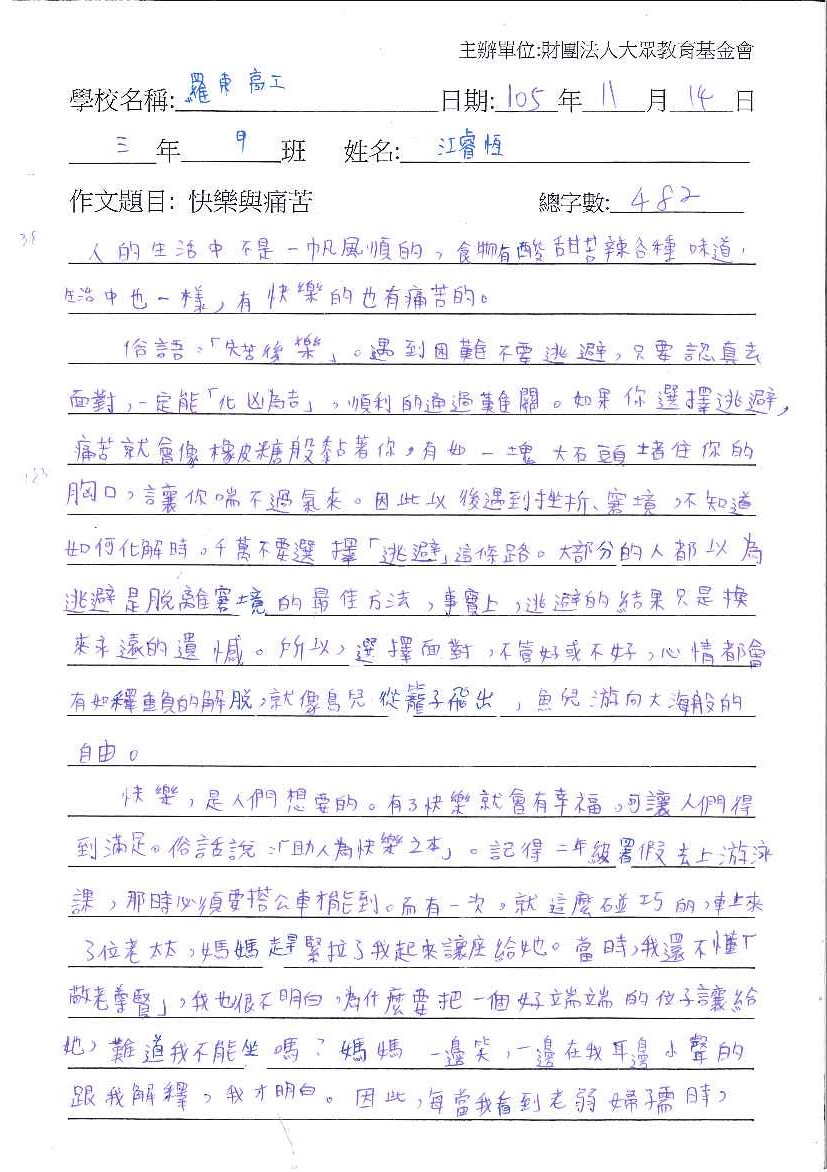 主辦單位:財團法人大眾教育基金會
學校名稱:羅東高工 日期:105年11月14日
三年甲班 姓名:江睿恆
作文題目: 快樂與痛苦 總字數:482
38
人的生活中不是一帆風順的,食物有酸甜苦辣各種味道,
生活中也一樣,有快樂的也有痛苦的。
俗語:「先苦後樂」。遇到困難不要逃避,只要認真去
面對,一定能「化凶為吉」,順利的通過難關。如果你選擇逃避,
痛苦就會像橡皮糖般黏著你,有如一塊大石頭堵住你的
123
胸口,讓你喘不過氣來。因此以後遇到挫折、窘境,不知道
如何化解時,千萬不要選擇「逃避」這條路。大部分的人都以為
逃避是脫離窘境的最佳方法,事實上,逃避的結果只是換
來永遠的遺憾。所以,選擇面對,不管好或不好,心情都會
有如釋重負的解脫,就像鳥兒從籠子飛出,魚兒游向大海般的
自由。
快樂,是人們想要的。有了快樂就會有幸福,可讓人們得
到滿足。俗話說:「助人為快樂之本」。記得二年級暑假去上游泳
課,那時必須要搭公車才能到。而有一次,就這麼碰巧的,車上來
了位老太太,媽媽趕緊拉了我起來讓座給她。當時,我還不懂「
敬老尊賢」,我也很不明白,為什麼要把一個好端端的位子讓給
她,難道我不能坐嗎?媽媽一邊笑,一邊在我耳邊小聲的
跟我解釋,我才明白。因此,每當我看到老弱婦孺時,